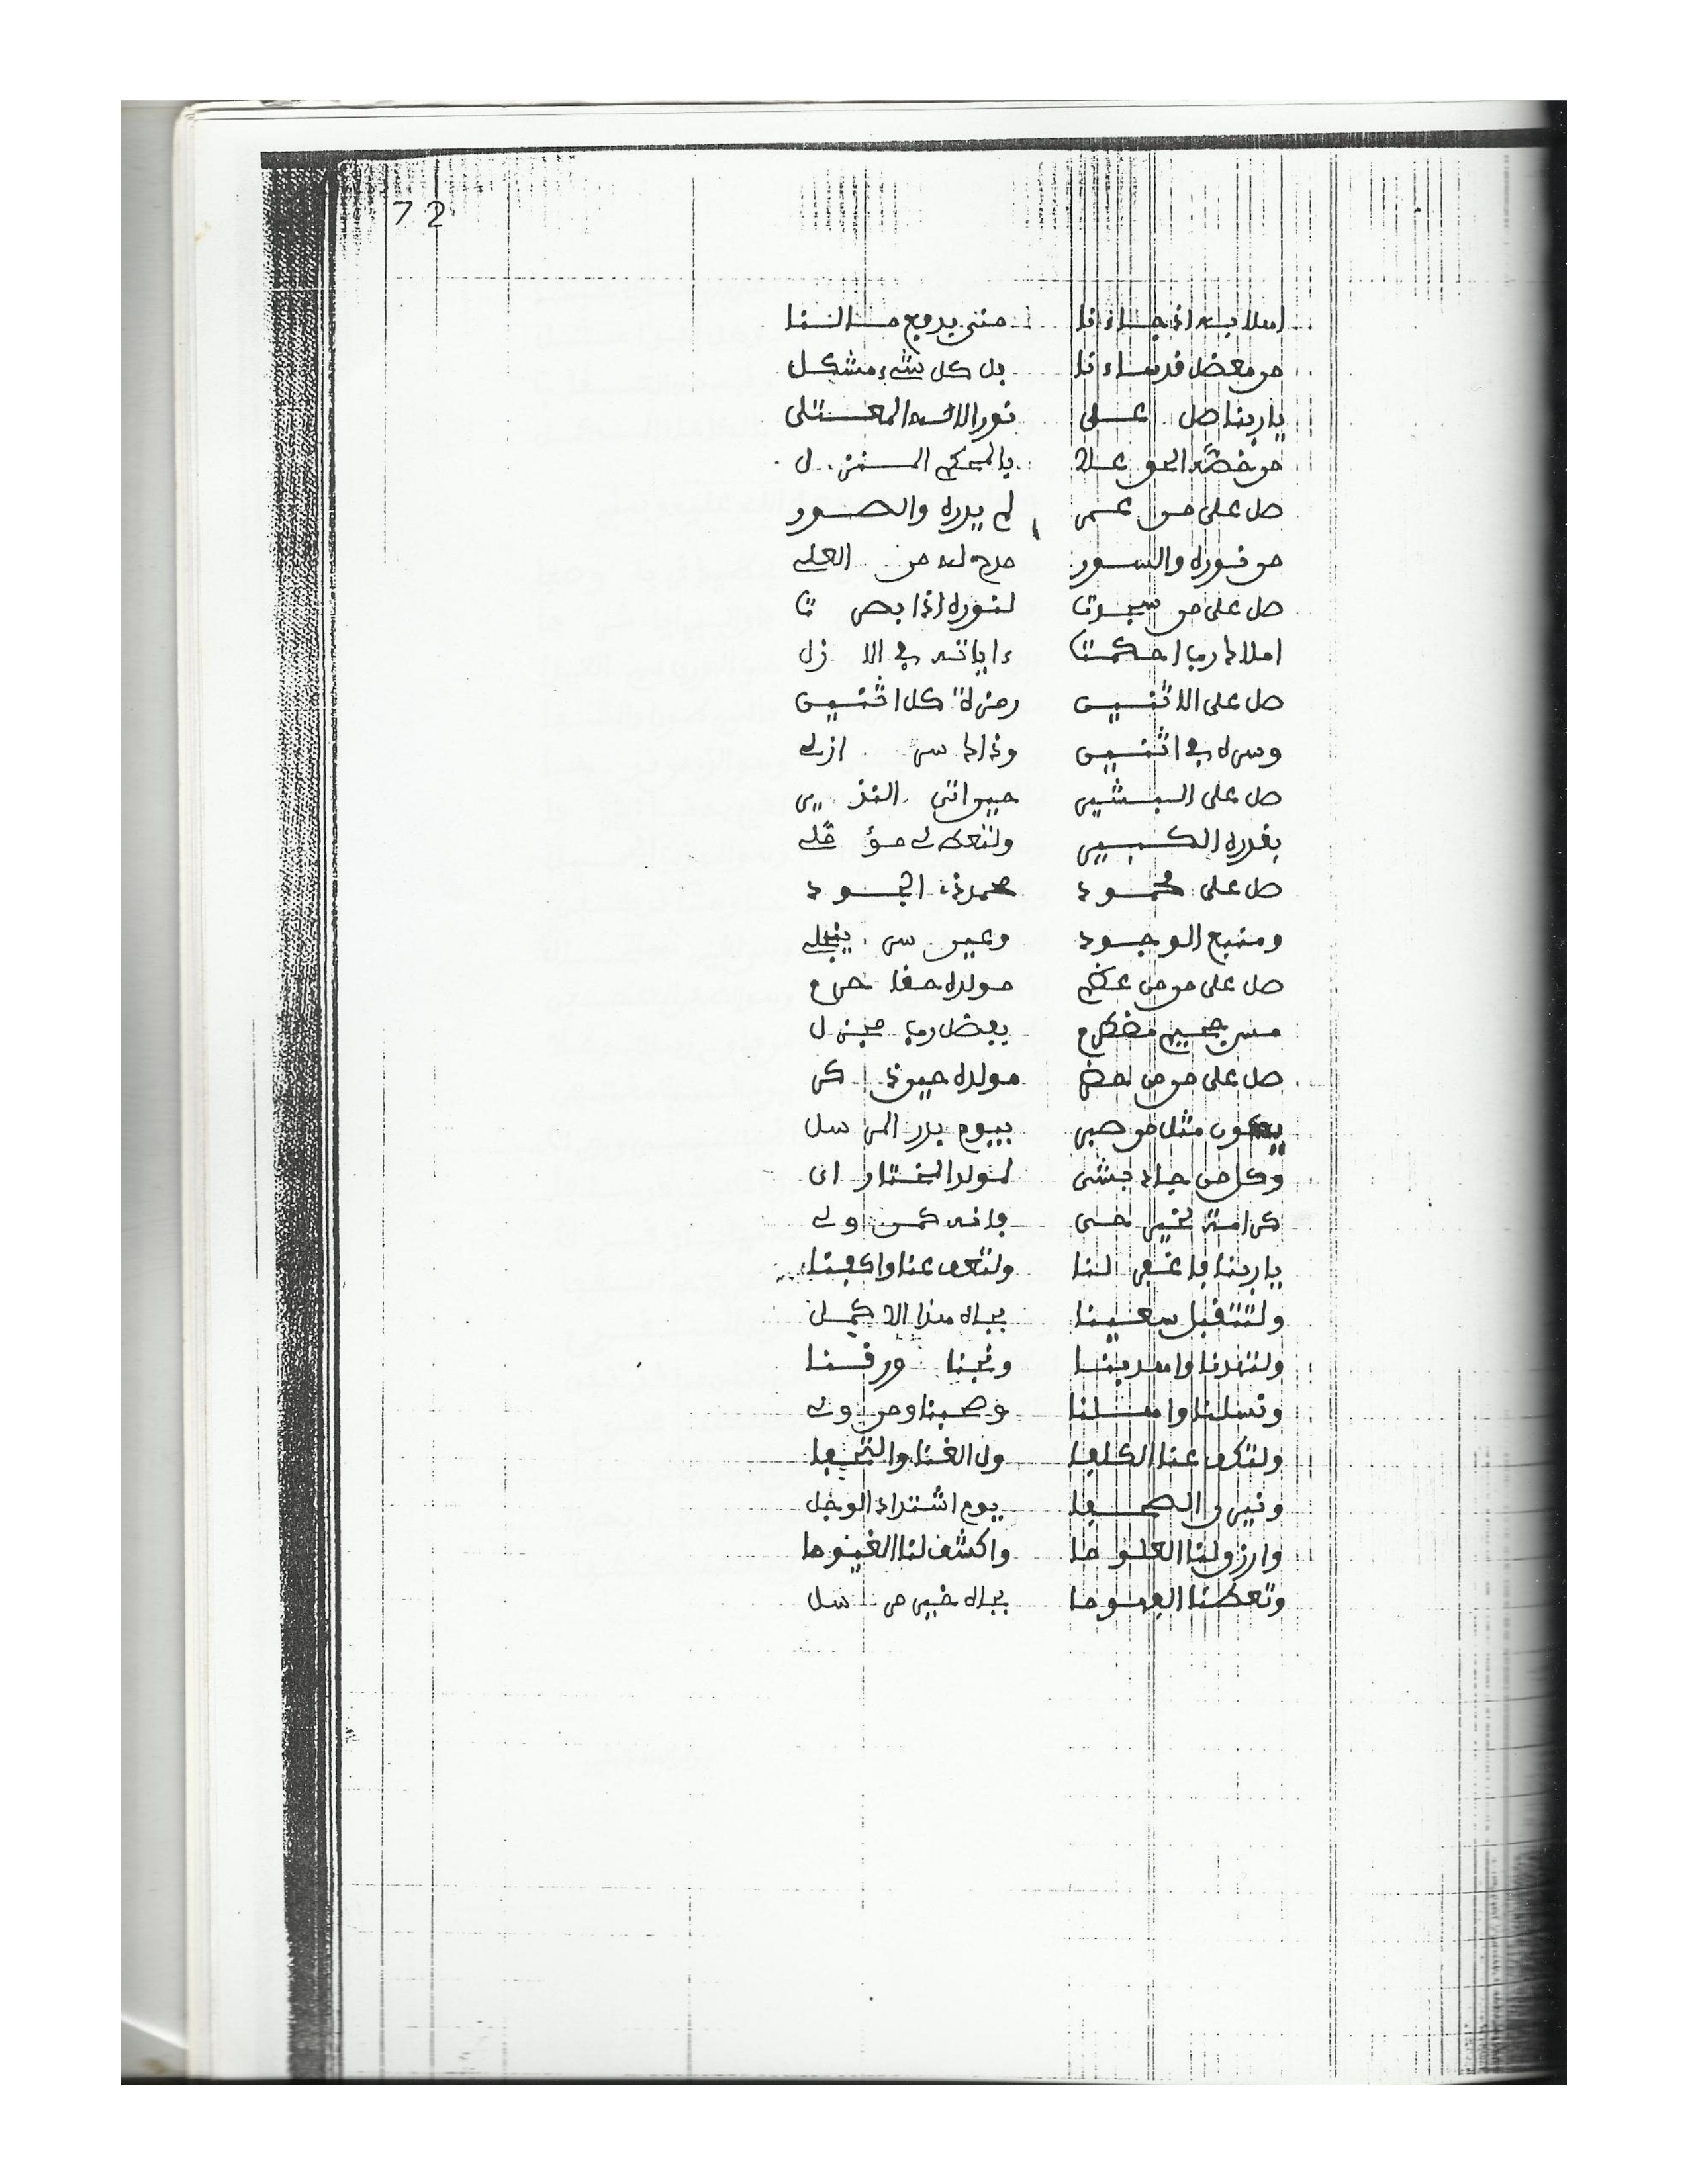 72
اهلا به اذ جاءنا متى يدفع مالنا
من معضل قد ساءنا بل كل شيء مشكل
يا ربنا صل على نور الاله المعتلى
من خصه الحق علا بالمحكم المنزل
صل على من عمى لم يدره والصور
من نوره والسور مدح له من العلي
صل على من سجدتا لنوره اذا بصرتا
املاك رب احكمتا ءاياته في الازل
صل على الاثنين رمزه كل اثنين
وسره في اثنين وذاك سر ازلي
صل على البشير حيواتي النذير
بقدره الكبير ولتعط لي مؤملي
صل على محمود محمد ذي الجود
ومنبع الوجود وعين سر ينجلي
صل على من من عظم مولده حقا حرم
مس جحيم مضطرم بفضل رب مجزل
صل على من من حضر مولده حين ذكر
يكون مثل من صبر بيوم بدر المرسل
وكل من جاد بشى لمولد المختار اى
كرامة لخير حى فانه كمن ولى
يا ربنا فاغفر لنا ولتعف عنا واكفنا
ولتتقبل سعينا بجاه هذا الاكمل
ولتهدنا واهد بنا ونجنا ورقنا
ونسلنا واهلنا وصحبنا ومن ولى
ولتكف عنا الكلفا ول الغنا والتحفا
ونير الصحفا يوم اشتداد الوجل
وارزق لنا العلوما واكشف لنا الغيوما
وتعطنا الفهوما بجاه خير مرسل